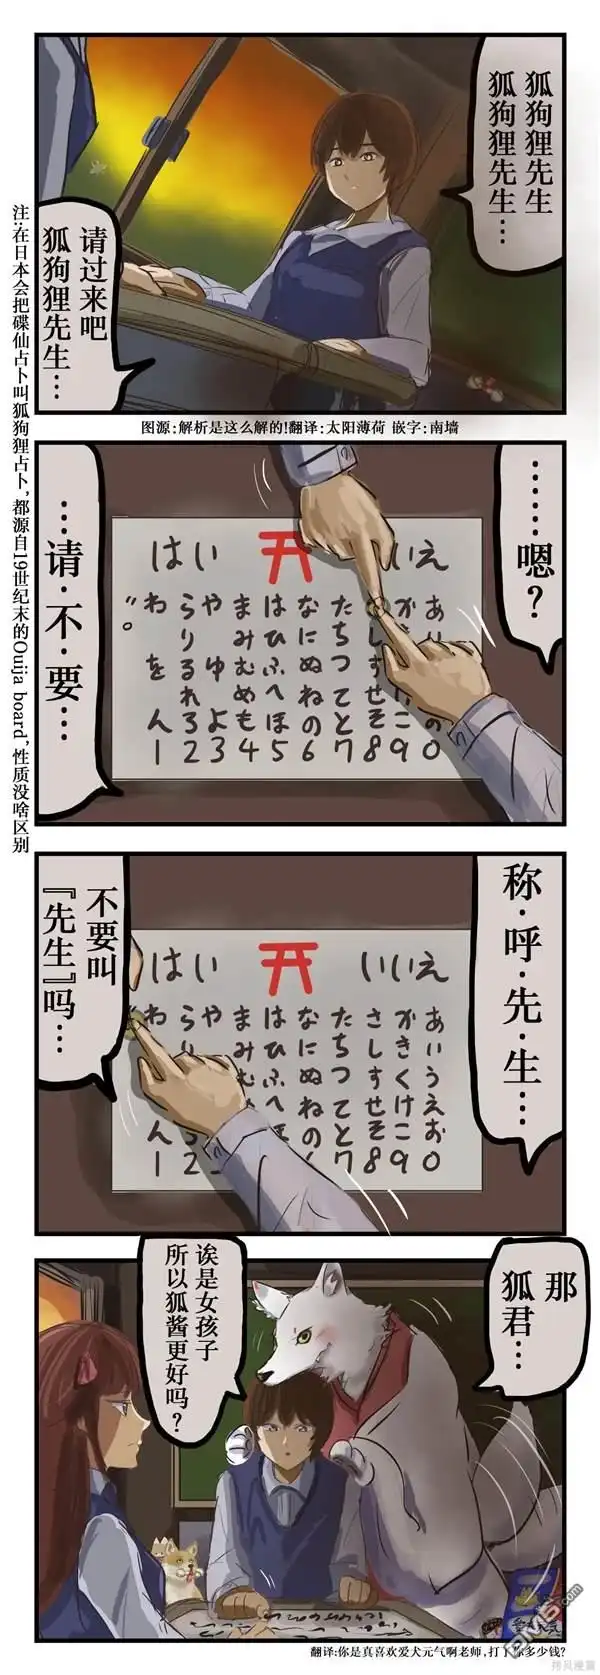 狐狗狸先生
狐狗狸先生…
请过来吧
狐狗狸先生…
注:在日本会把碟仙占卜叫狐狗狸占卜,都源自19世纪末的Ouija board,性质没啥区别
图源:解析是这么解的!翻译:太阳薄荷 嵌字:南墙
……嗯?
…请·不·要…
はい
いえ
あ
の0
か
こ9
しすせそ8
たちつてと7
なにぬねの6
はひふへほ5
まみむめも4
やゆよ3
らりるれろ2
わをん1
称·呼·先·生…
不要叫
『先生』吗…
はい
いいえ
あいうえお0
かきくけこ9
さしすせそ8
たちつてと7
なにぬねの
はひふへほ
まみむ
や
らり
2
わ
ん1
那
狐君…
诶是女孩子
所以狐酱更好吗?
翻译:你是真喜欢爱犬元气啊老师,打了你多少钱?